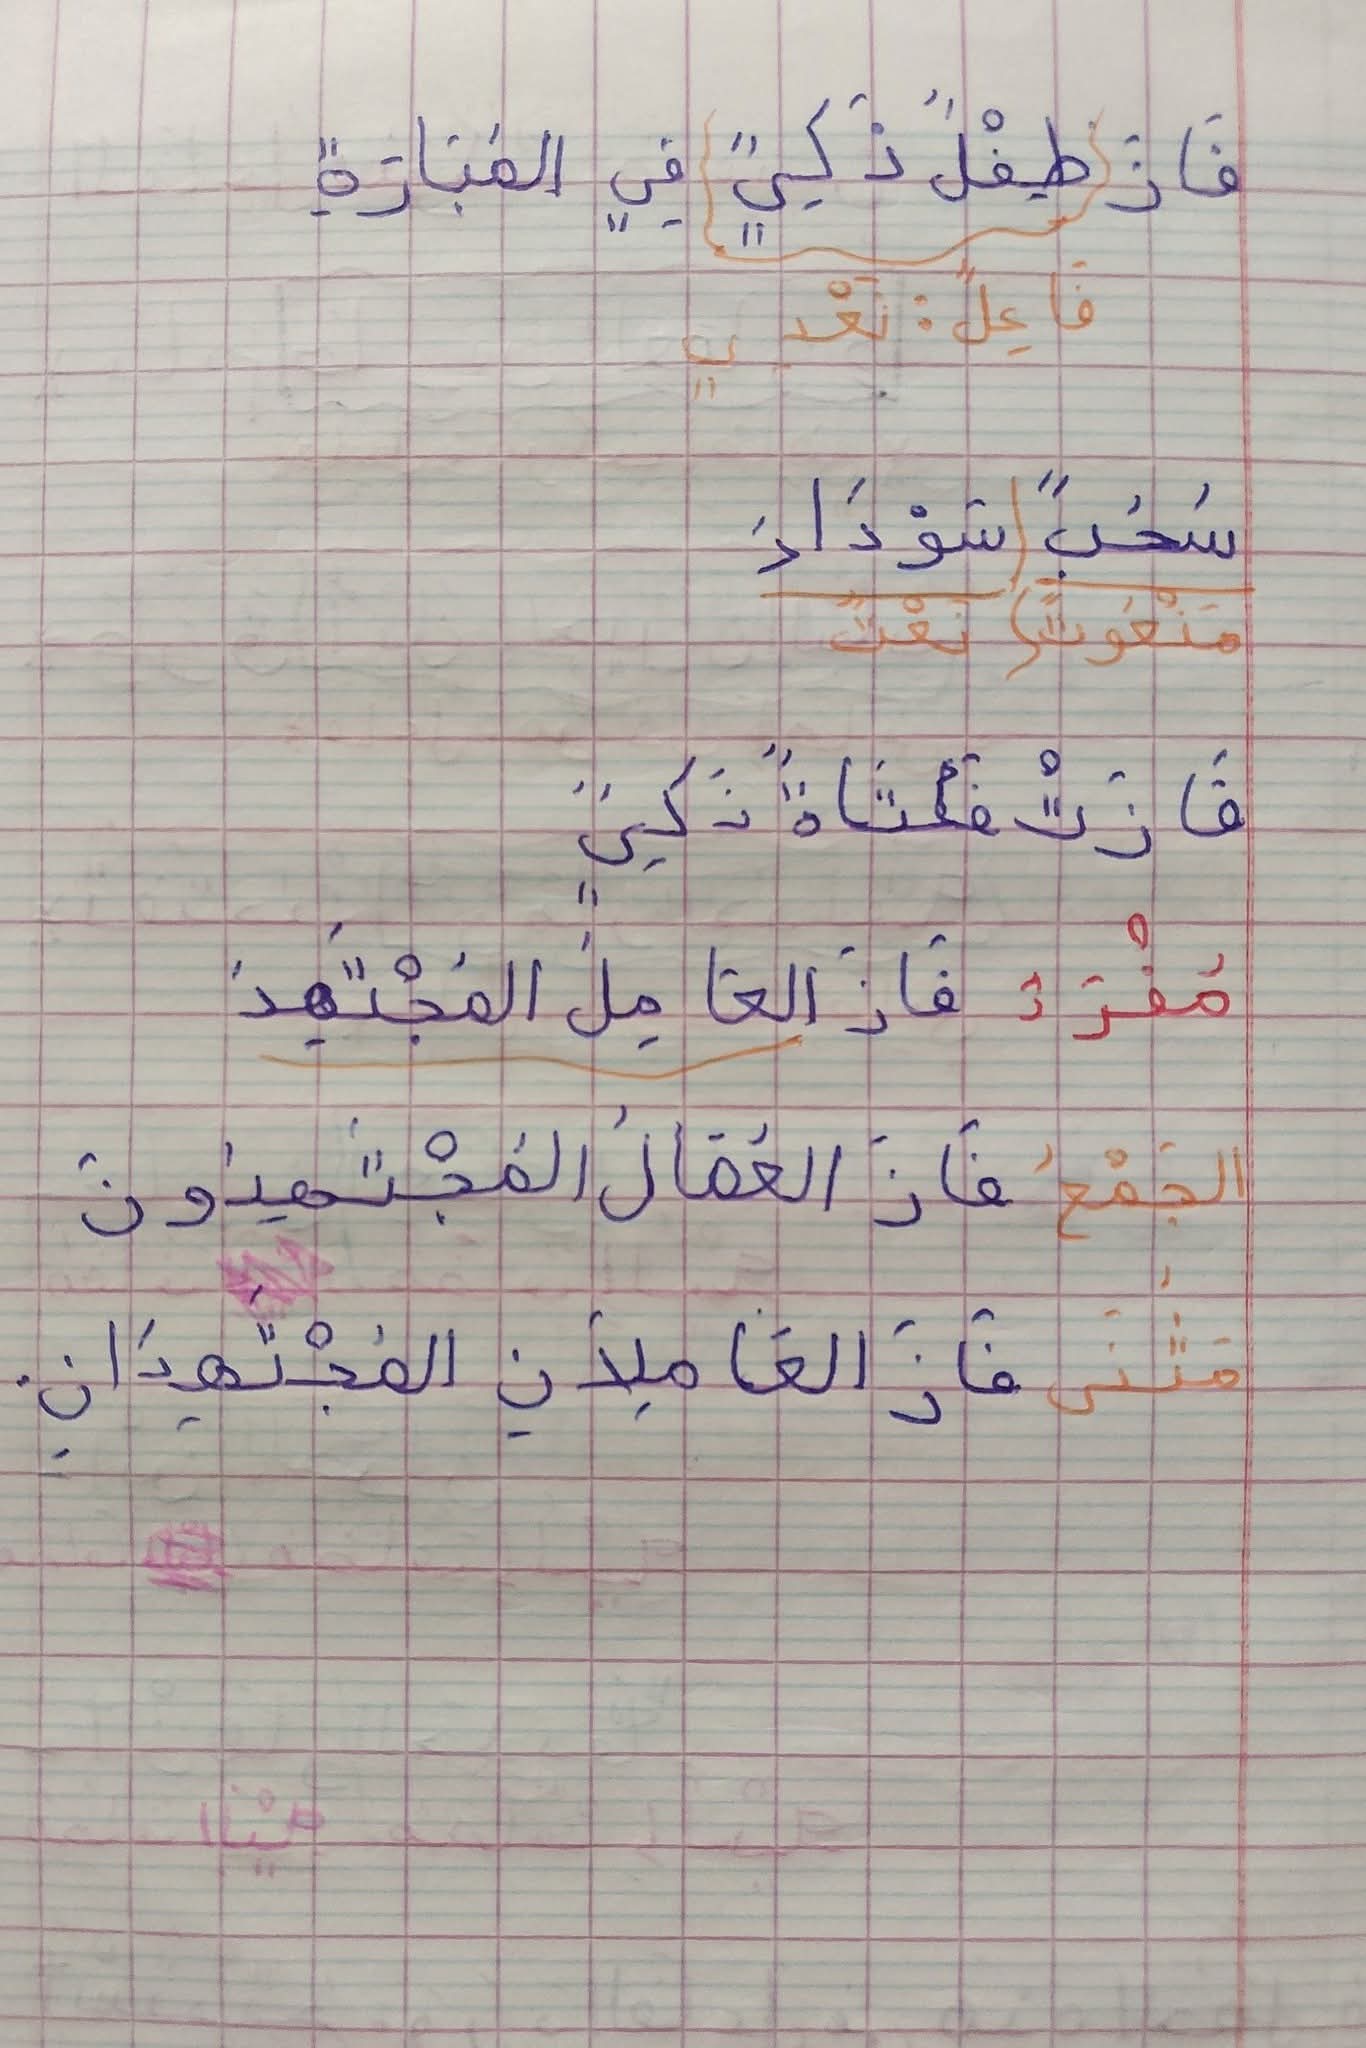 فَازَ طِفْلٌ ذَكِيٌّ فِي المُبَارَةِ
فَاعِلٌ : نَعْدِي
سُحُبٌ سَوْدَاءُ
مَنْعُوتٌ نَعْتٌ
فَازَتْ فَتَاةٌ ذَكِيٌّ
مُفْرَدٌ فَازَ العَامِلُ المُجْتَهِدُ
الجَمْعُ فَازَ العُمَّالُ المُجْتَهِدُونَ
مُثَنَى فَازَ العَامِلاَنِ المُجْتَهِدَانِ.